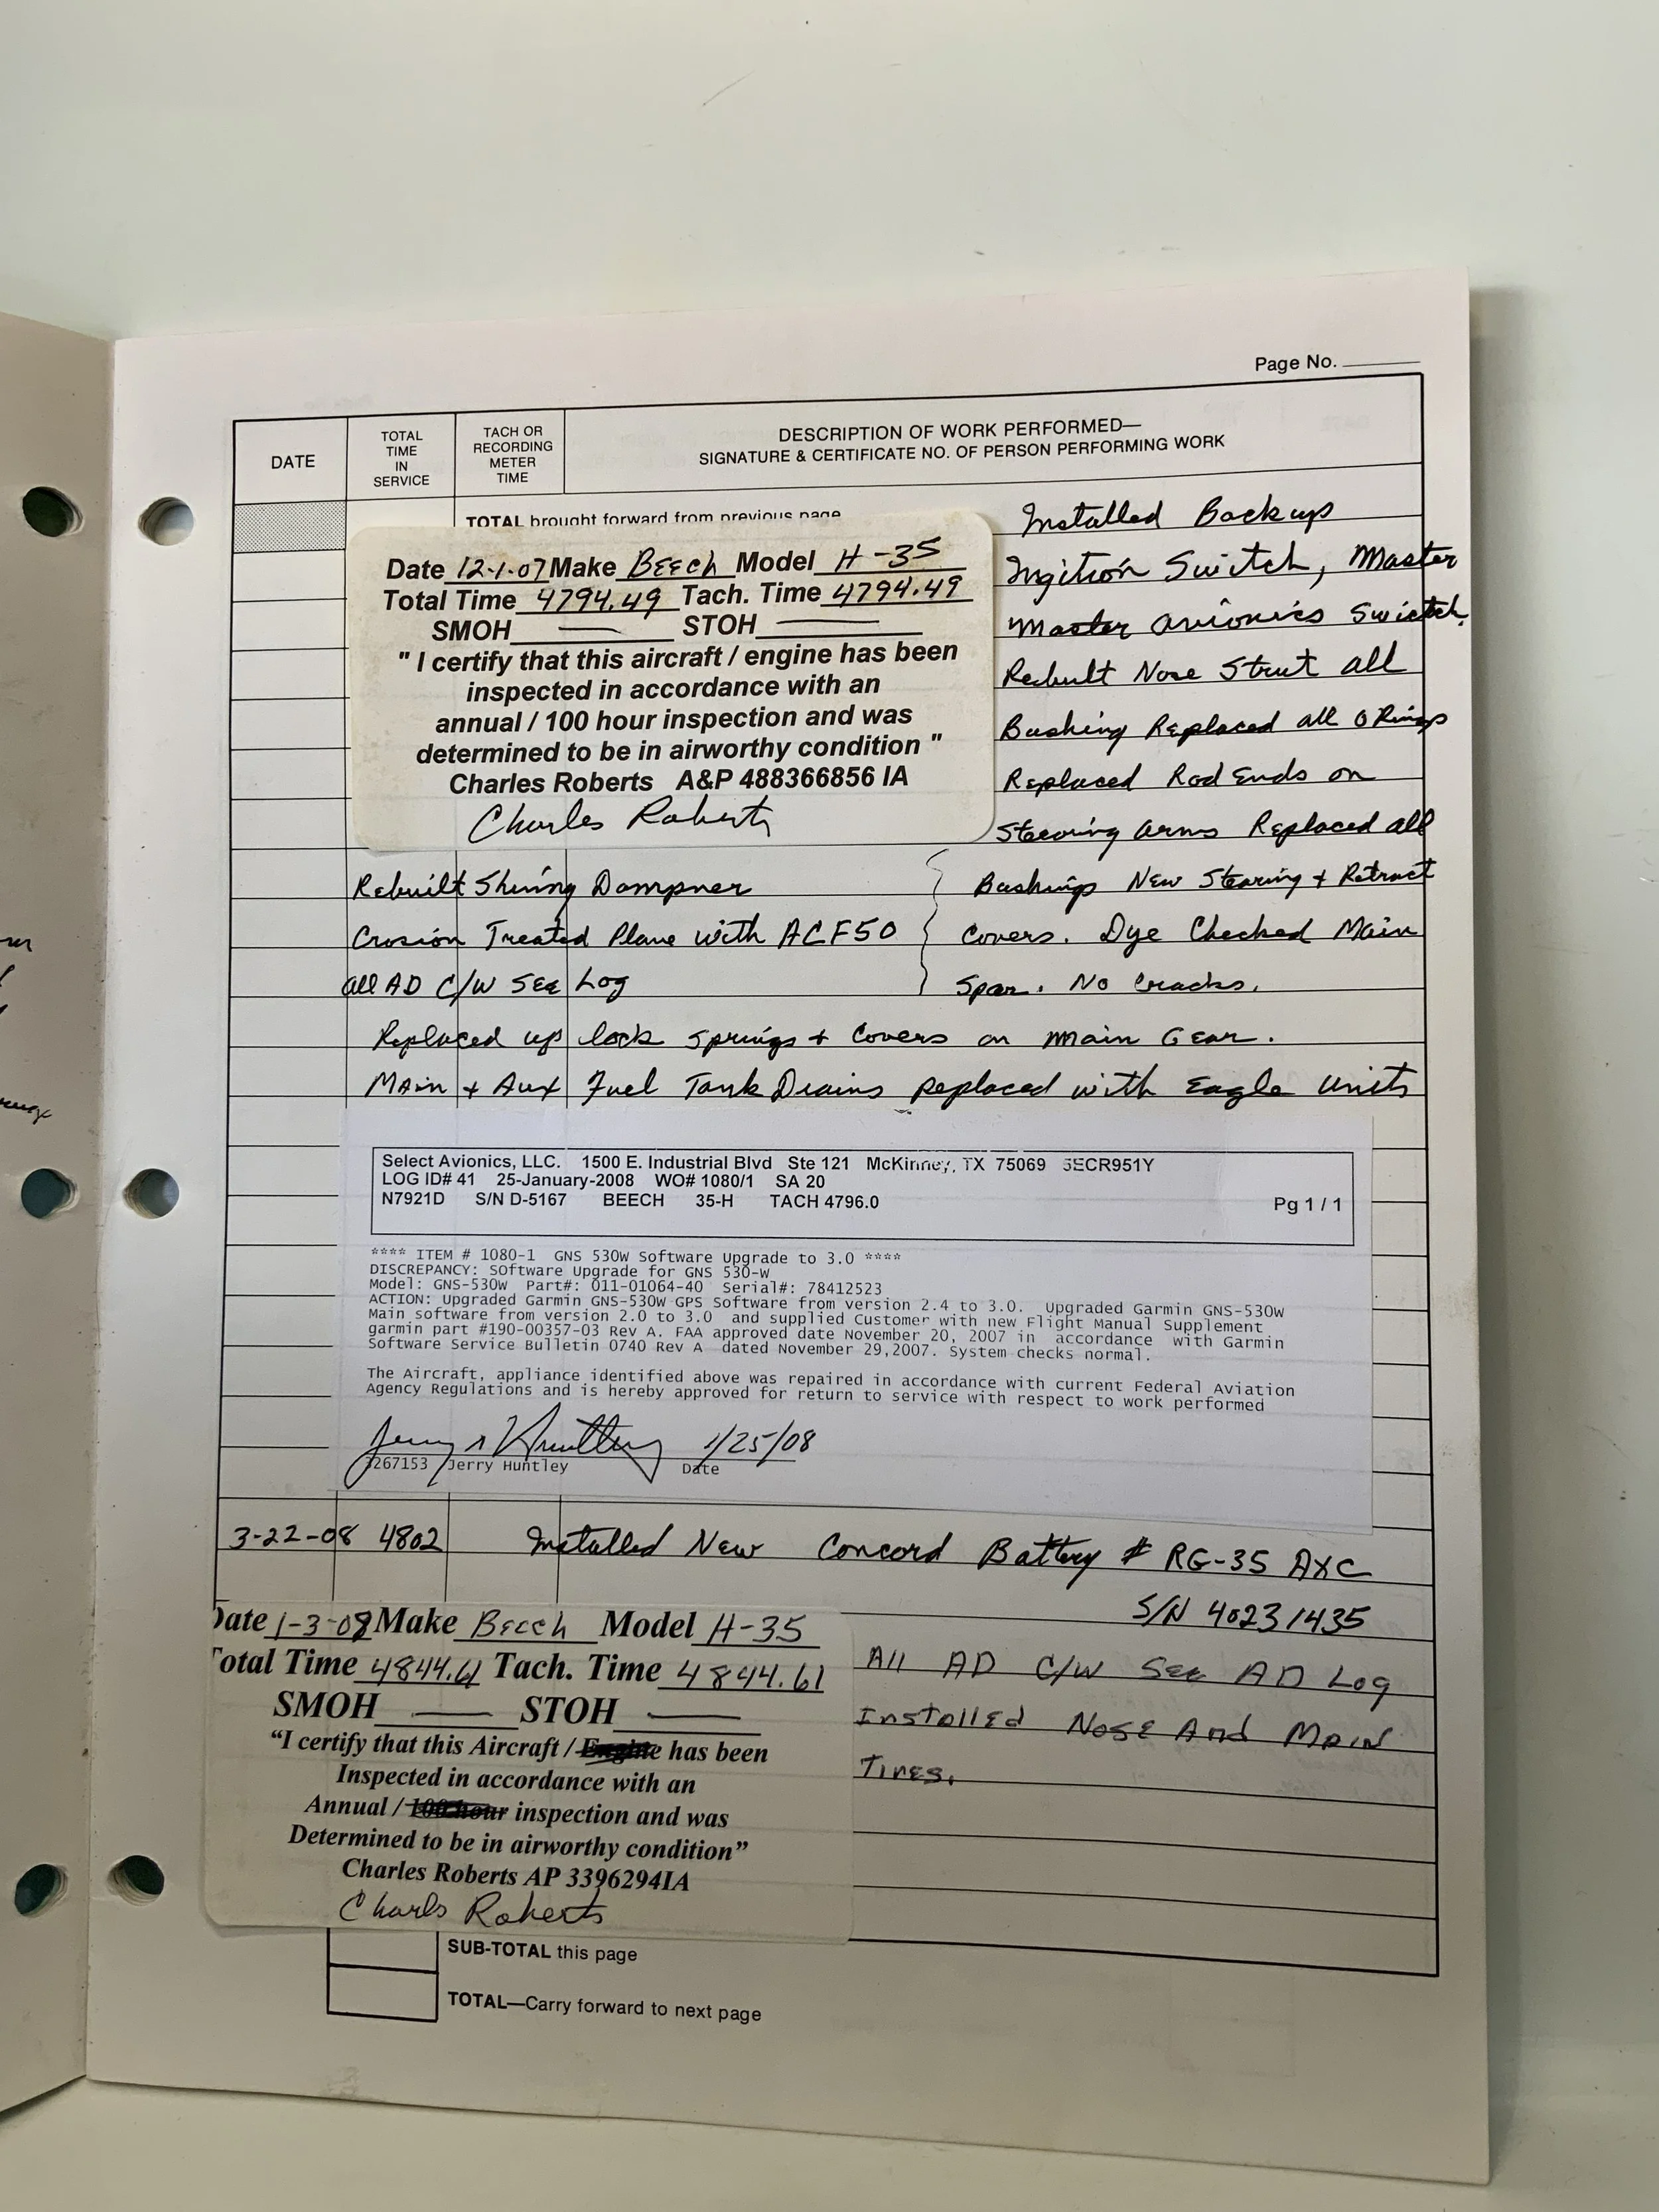 Page No.
DATE
TOTAL
TIME
IN
SERVICE
TACH OR
RECORDING
METER
TIME
DESCRIPTION OF WORK PERFORMED—
SIGNATURE & CERTIFICATE NO. OF PERSON PERFORMING WORK
TOTAL brought forward from previous page
Date 12-1-07 Make Beech Model H-35
Total Time 4794.49 Tach. Time 4794.49
SMOH — STOH —
" I certify that this aircraft / engine has been
inspected in accordance with an
annual / 100 hour inspection and was
determined to be in airworthy condition "
Charles Roberts A&P 488366856 IA
Charles Roberts
Installed Backup
Ingition Switch, Master
Master Avionics Swictch.
Rebult Nose Strut all
Bushing Replaced all O Rings
Replaced Rod Ends on
Stearing Arms Replaced all
Bushings New Stearing + Retract
Covers. Dye Checked Main
Spar. No Cracks.
Rebuilt Shimy Dampner
Crosion Treated Plane with ACF50
all AD C/W See Log
Replaced up lock springs + Covers on Main Gear.
Main + Aux Fuel Tank Drains replaced with Eagle Units
Select Avionics, LLC. 1500 E. Industrial Blvd Ste 121 McKinney, TX 75069 5ECR951Y
LOG ID# 41 25-January-2008 WO# 1080/1 SA 20
N7921D S/N D-5167 BEECH 35-H TACH 4796.0
Pg 1 / 1
**** ITEM # 1080-1 GNS 530W Software Upgrade to 3.0 ****
DISCREPANCY: SOftware Upgrade for GNS 530-W
Model: GNS-530W Part#: 011-01064-40 Serial#: 78412523
ACTION: Upgraded Garmin GNS-530W GPS Software from version 2.4 to 3.0. Upgraded Garmin GNS-530W
Main software from version 2.0 to 3.0 and supplied Customer with new Flight Manual Supplement
garmin part #190-00357-03 Rev A. FAA approved date November 20, 2007 in accordance with Garmin
Software Service Bulletin 0740 Rev A dated November 29,2007. System checks normal.
The Aircraft, appliance identified above was repaired in accordance with current Federal Aviation
Agency Regulations and is hereby approved for return to service with respect to work performed
Jerry Huntley 1/25/08
3267153 Jerry Huntley Date
3-22-08 4802 Installed New Concord Battery # RG-35 AXC
S/N 40231435
Date 1-3-08 Make Beech Model H-35
Total Time 4844.61 Tach. Time 4844.61
SMOH — STOH —
“I certify that this Aircraft / Engine has been
Inspected in accordance with an
Annual / 100 hour inspection and was
Determined to be in airworthy condition”
Charles Roberts AP 3396294IA
Charls Roberts
All AD C/W See AD Log
Installed Nose And Main
Tires.
SUB-TOTAL this page
TOTAL—Carry forward to next page